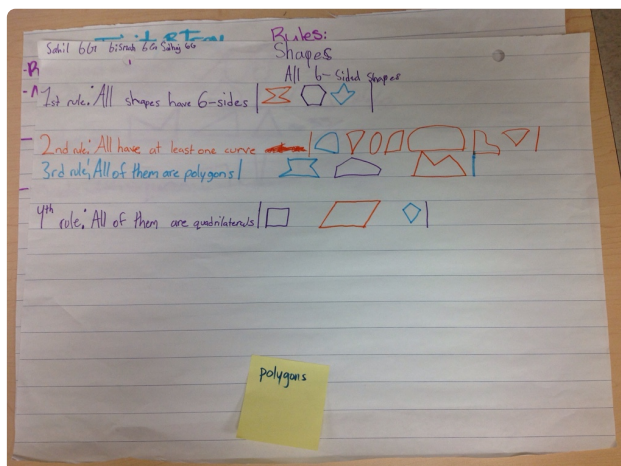 Rules:
Sahil 6G bismah 6G Sahaj 6G
Shapes
All 6-Sided Shapes
1st rule: All shapes have 6-sides
2nd rule: All have at least one curve
3rd rule: All of them are polygons
4th rule: All of them are quadrilaterals
polygons